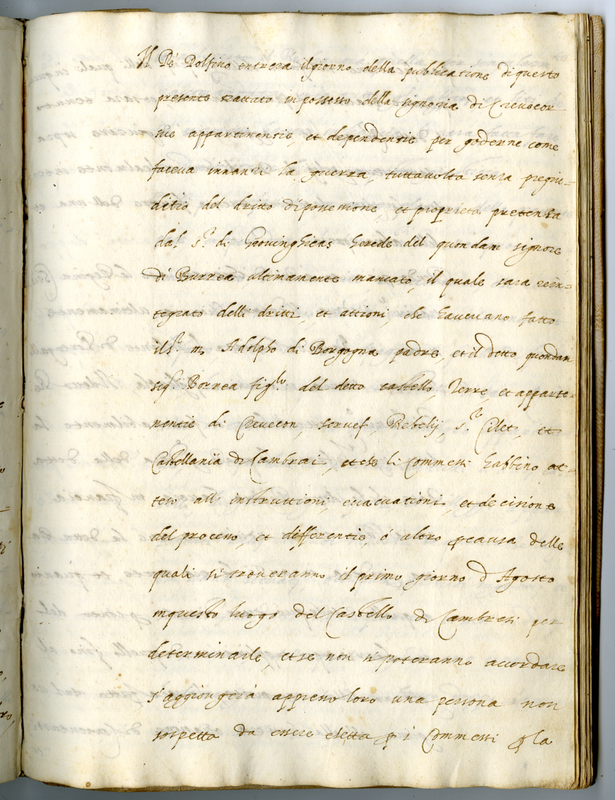 Il Rè Dolfino entrera il giorno della publicatione di questo
presente trattato in possesso della signoria di Crevecor
sue appartinentie, et dependentie per goderne come
faceva innanzi la guerra, tuttavolta senza pregiu-
ditio del dritto di possessione, et proprietà pretensa
dal s.r di herede del quondam signore
di ultimamente mancato, il quale sara rein-
tegrato delli dritti, et attioni, che havevano fatto
ill.s m. Adolpho di Borgogna padre, et il detto quondam
sig.r figl.o del detto castello Terre et apparte-
nentie di s.to et
Castellania di Cambrai, et che li Commessi habbino at-
teso all instruttioni, evacuationi, et decisione
del processo, et differentie, ó altro causa delle
quali si troveranno il primo giorno d Agosto
in questo luogo del Castello di Cambresi per
determinarle, et se non si poteranno accordare
s'aggiongera appresso loro una persona non
sospetta da essere eletta p i Commessi p la